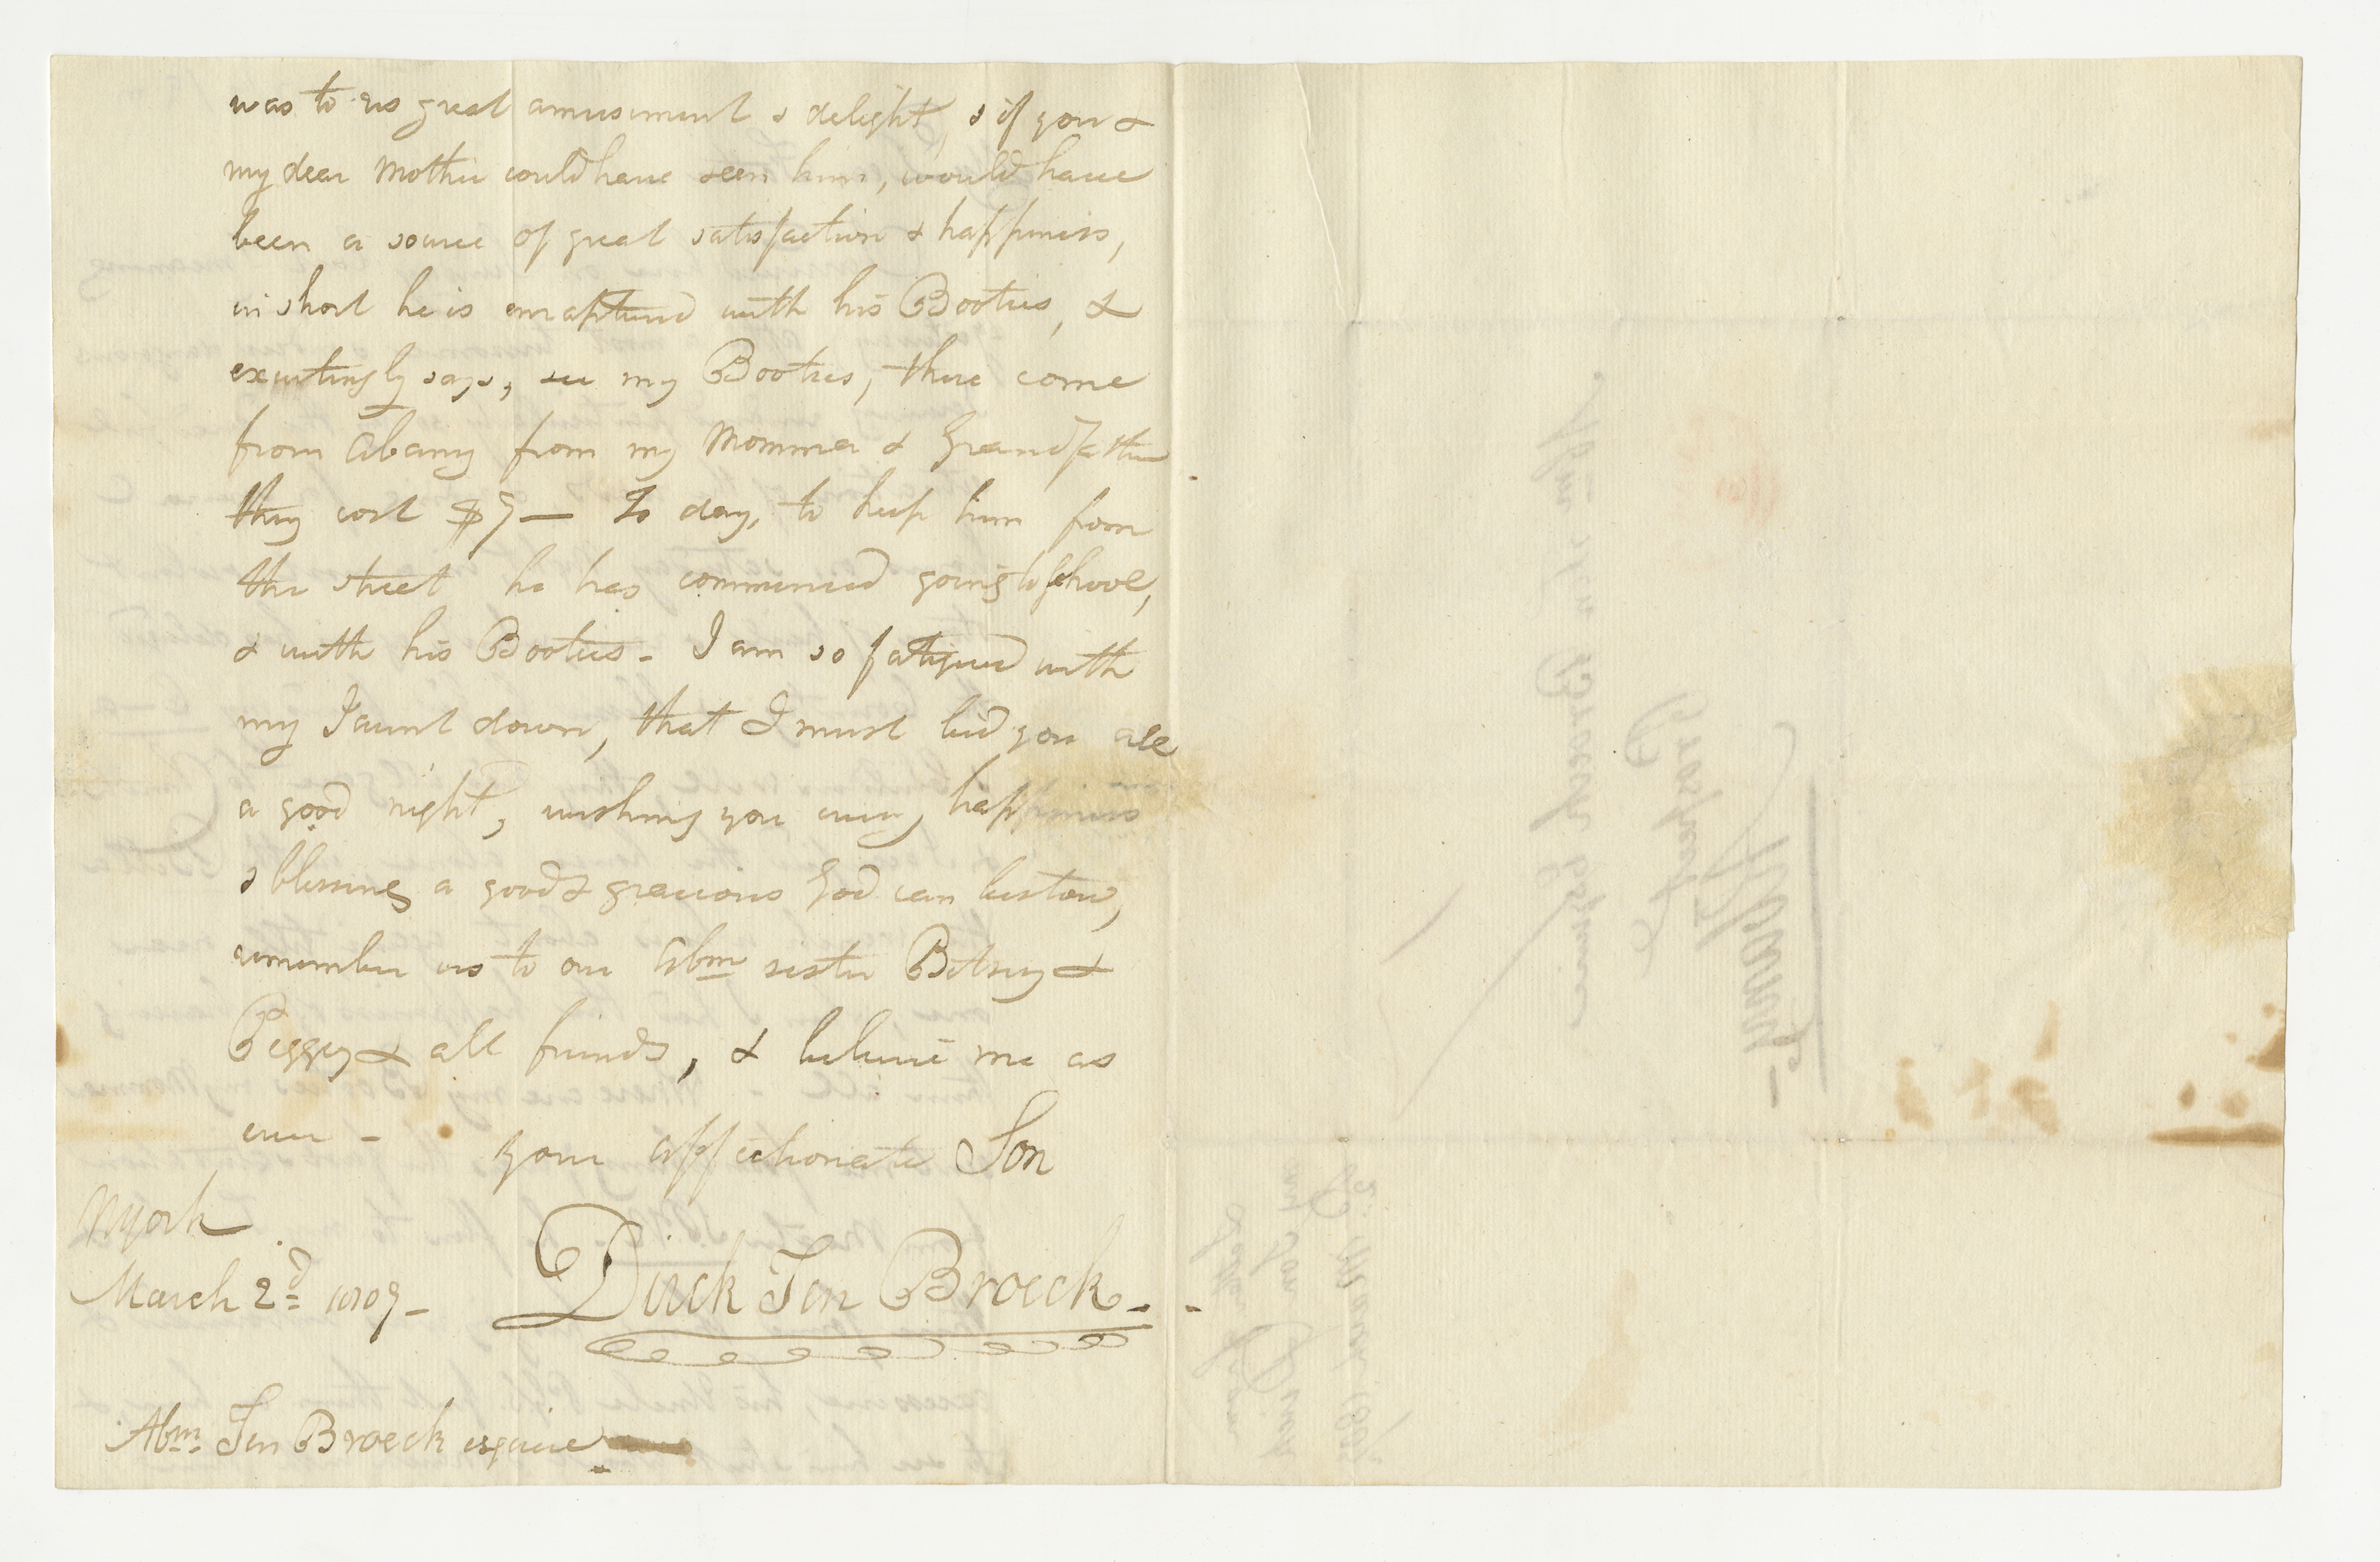 was to us great amusement & delight, & if you &
my dear Mother could have seen him, would have
been a source of great satisfaction & happiness,
in short he is enraptured with his Booties, &
exultingly says, see my Booties, these come
from Albany from my Momma & Grandfather
they cost $9 — To day, to keep him from
the street he has commenced going to School,
& with his Booties - I am so fatigued with
my Jaunt down, that I must bid you all
a good night, wishing you every happiness
& blessing a good & gracious God can bestow,
remember us to our Abm sister Betsey &
Peggy & all friends, & believe me as
ever - your affectionate Son
NYork
March 2d 1809 - Dirck Ten Broeck -
Abm Ten Broeck esquire